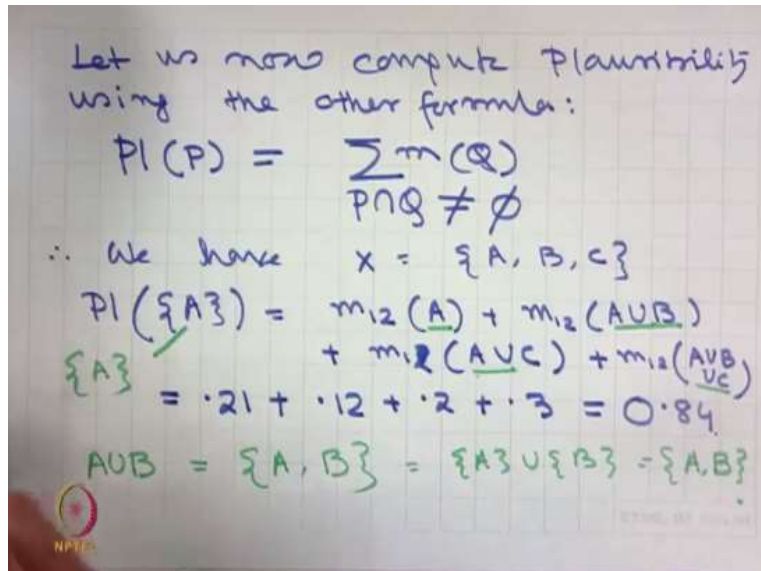 Let us now compute Plausibility
using the other formula:
Pl(P) = ∑ m(Q)
P∩Q ≠ ∅
∴ We have X = {A, B, C}
Pl({A}) = m12(A) + m12(A∪B)
{A} + m12(A∪C) + m12(A∪B ∪C)
= .21 + .12 + .2 + .3 = 0.84
A∪B = {A, B} = {A} ∪ {B} = {A, B}
NPTEL